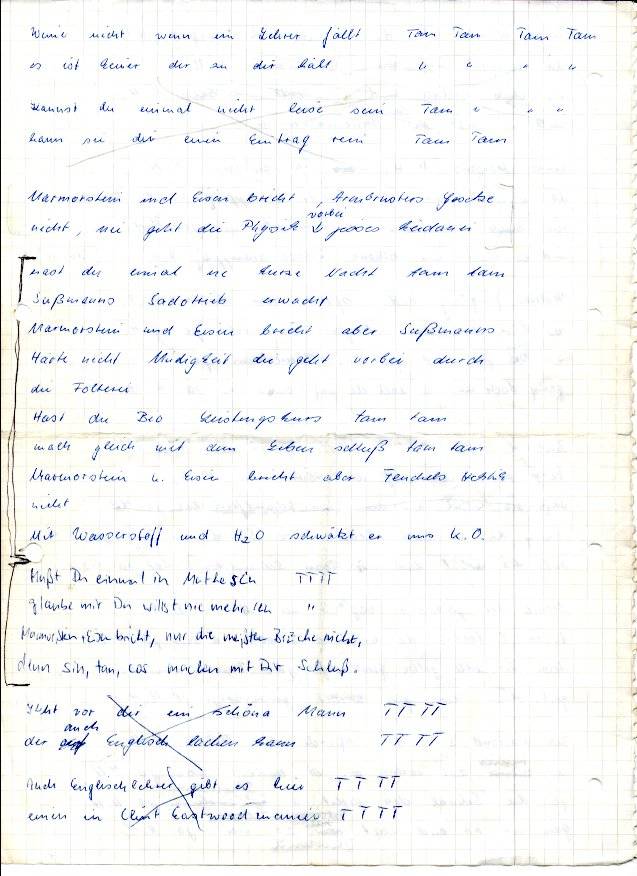 Weine nicht wenn ein Lehrer fällt Tam Tam Tam Tam
es ist keiner der zu dir hält " " " "
Kannst du einmal nicht leise sein Tam " " "
kann sie dir einen Eintrag rein Tam Tam
Marmorstein und Eisen bricht, Gesetze
nicht, nie geht die Physik vorbei
Hast du einmal ne kurze Nacht tam tam
Süßmanns Sadotrieb erwacht
Marmorstein und Eisen bricht aber Süßmanns
Härte nicht Müdigkeit die geht vorbei durch
die Folterei
Hast du Bio Leistungskurs tam tam
mach gleich mit dem Leben schluß tam tam
Marmorstein u. Eisen bricht aber Fenchels
nicht
Mit Wasserstoff und H2O schwätzt er uns K.O.
Mußt Du einmal in Mathe sein TTTT
glaube mir Du willst nie mehr rein "
Marmorstein + Eisen bricht, nur die meisten Brüche nicht,
denn sin, tan, cos machen mit Dir Schluß.
Steht vor dir ein schöna Mann TT TT
der auch Englisch lachen kann TT TT
Auch Englischlehrer gibt es hier T T TT
einen in Clint Eastwoodmanier T T T T